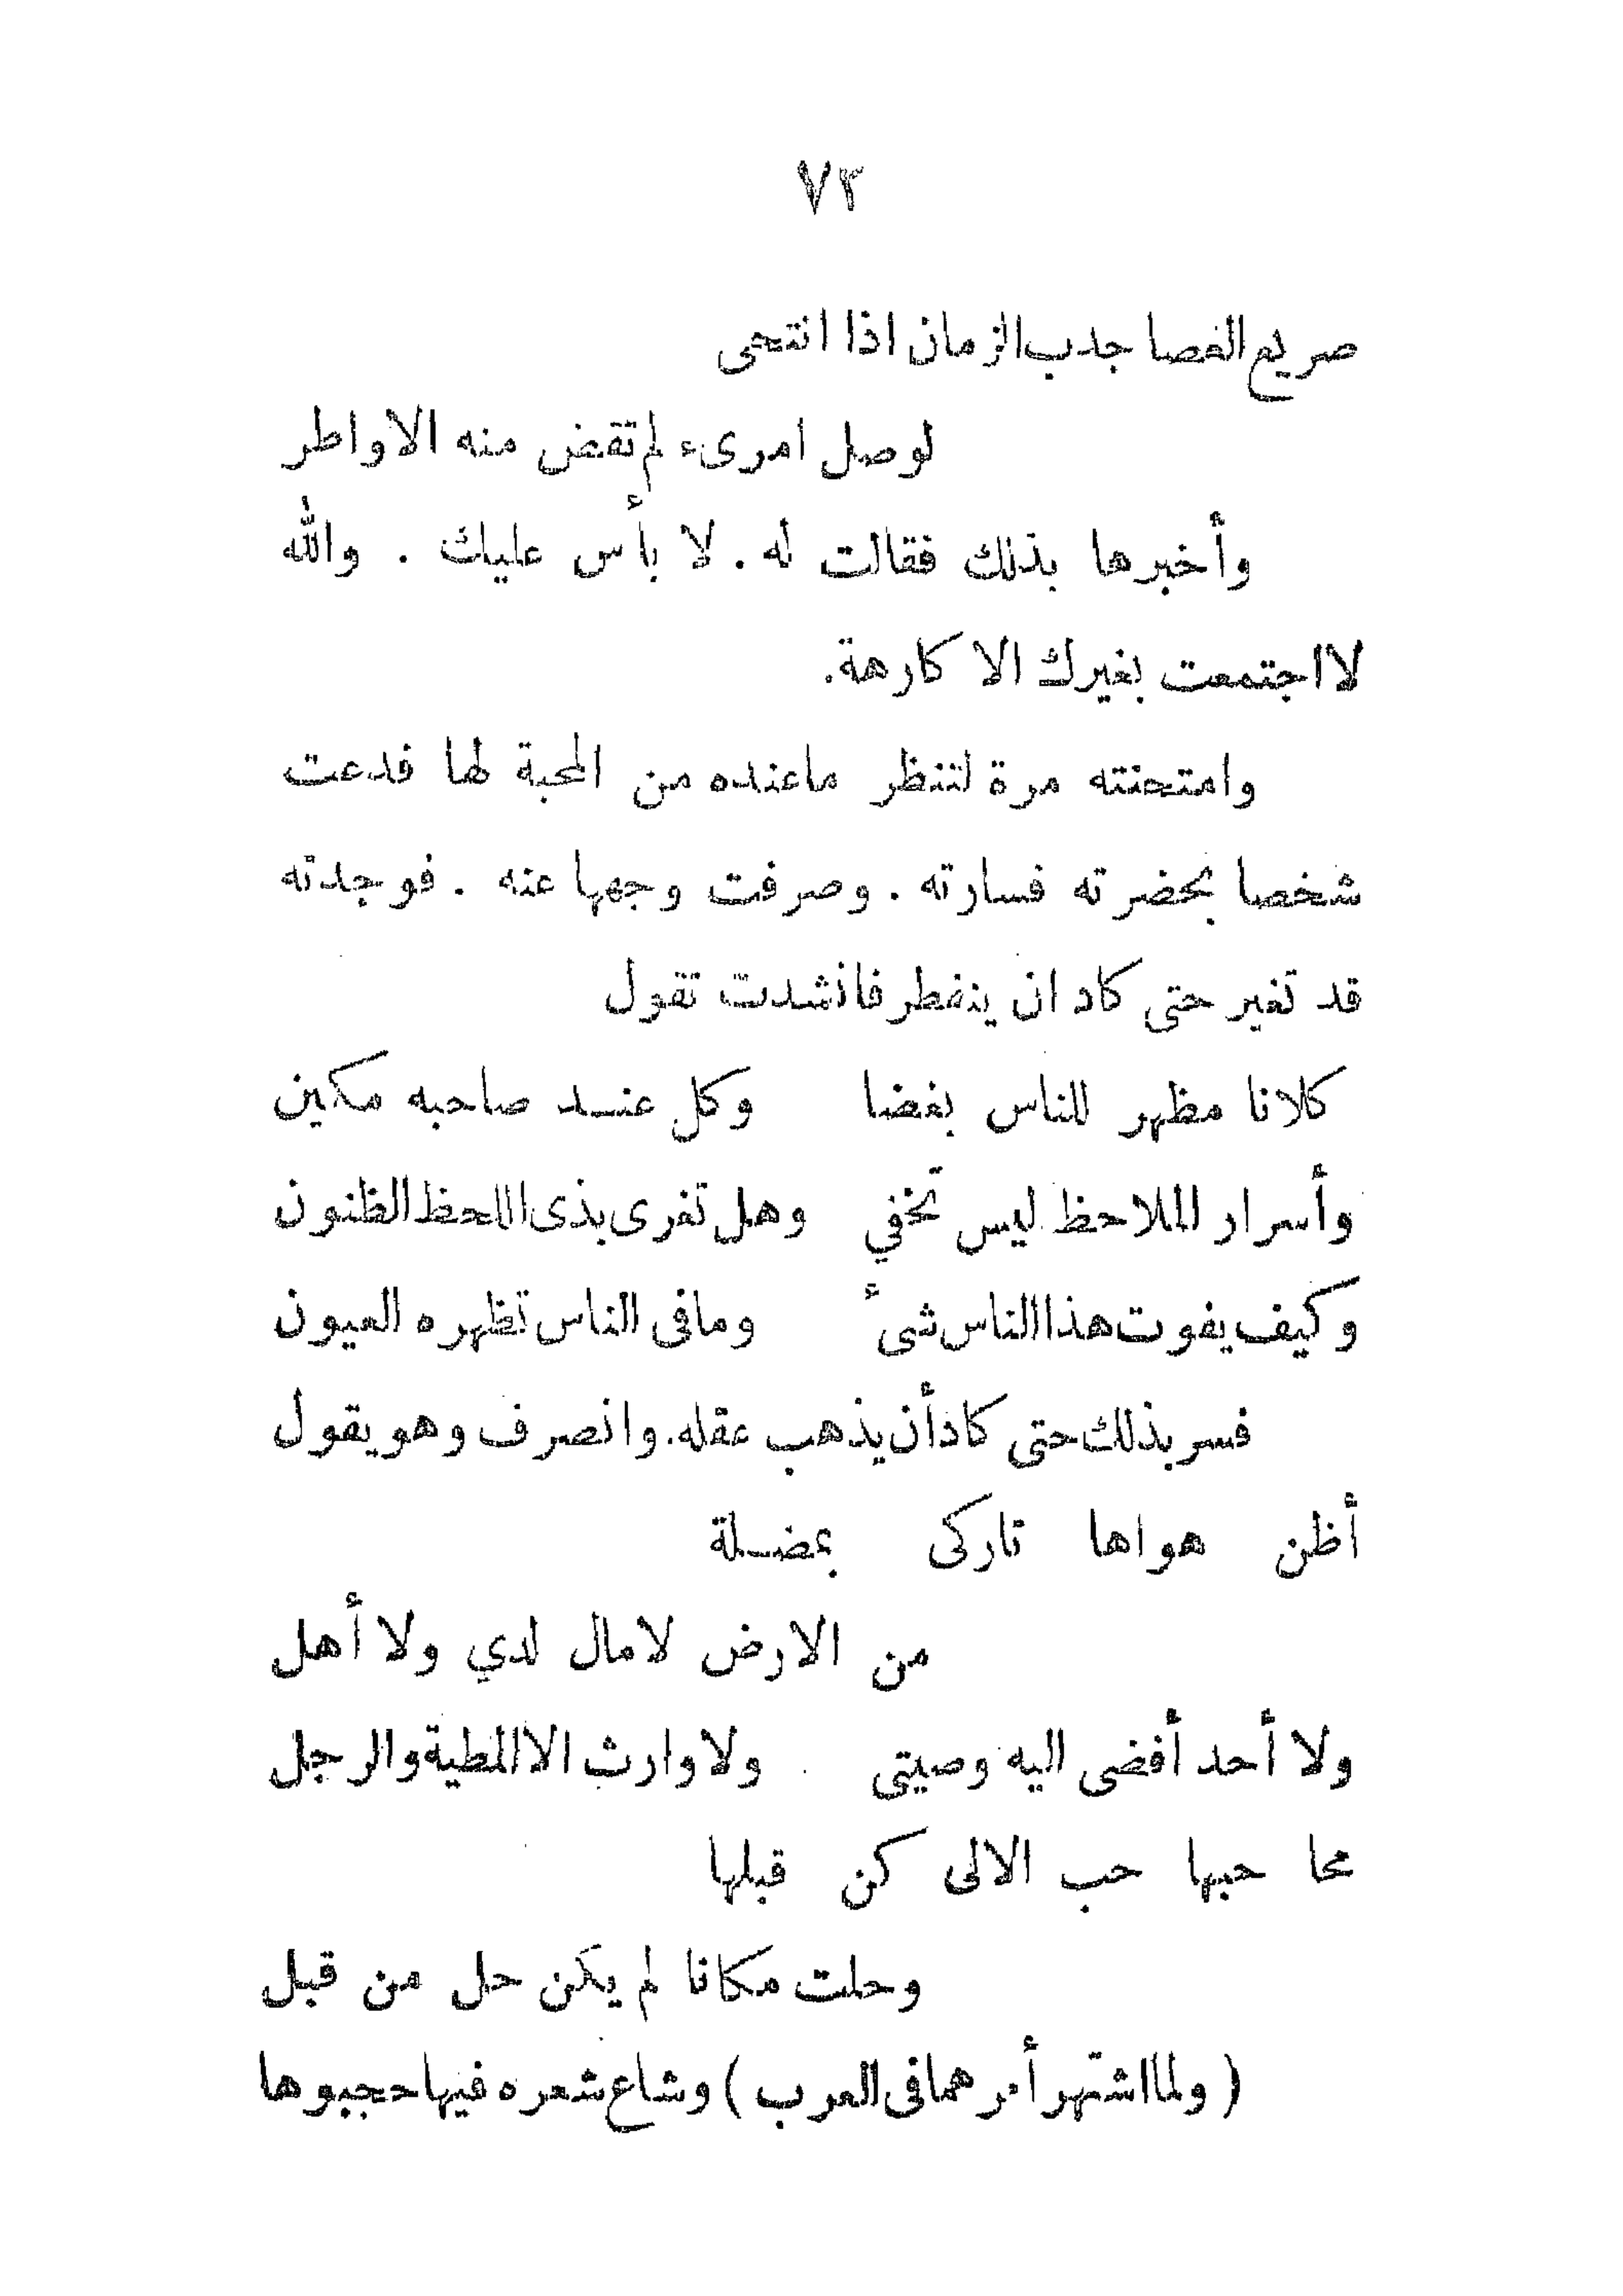 ٧٣
صريع الغصا جدب الزمان اذا انتحى
لوصل امرىء لم تقض منه الاواطر
وأخبرها بذلك فقالت له . لا بأس عليك . والله
لا اجتمعت بغيرك الا كارهة.
وامتحنته مرة لتنظر ماعنده من المحبة لها فدعت
شخصا بحضرته فسارته . وصرفت وجهها عنه . فوجدته
قد تغير حتى كاد ان ينفطر فانشدت تقول
كلانا مظهر للناس بغضا وكل عند صاحبه مكين
وأسرار الملاحظ ليس تخفي وهل تغرى بذى اللحظ الظنون
وكيف يفوت هذا الناس شىء وما فى الناس تظهره العيون
فسر بذلك حتى كاد أن يذهب عقله. وانصرف وهو يقول
أظن هواها تاركى بمضلة
من الارض لا مال لدي ولا أهل
ولا أحد أفضى اليه وصيتى ولا وارث الا المطية والرجل
محا حبها حب الالى كن قبلها
وحلت مكانا لم يكن حل من قبل
( ولما اشتهر أمرهما فى العرب ) وشاع شعره فيها حجبوها